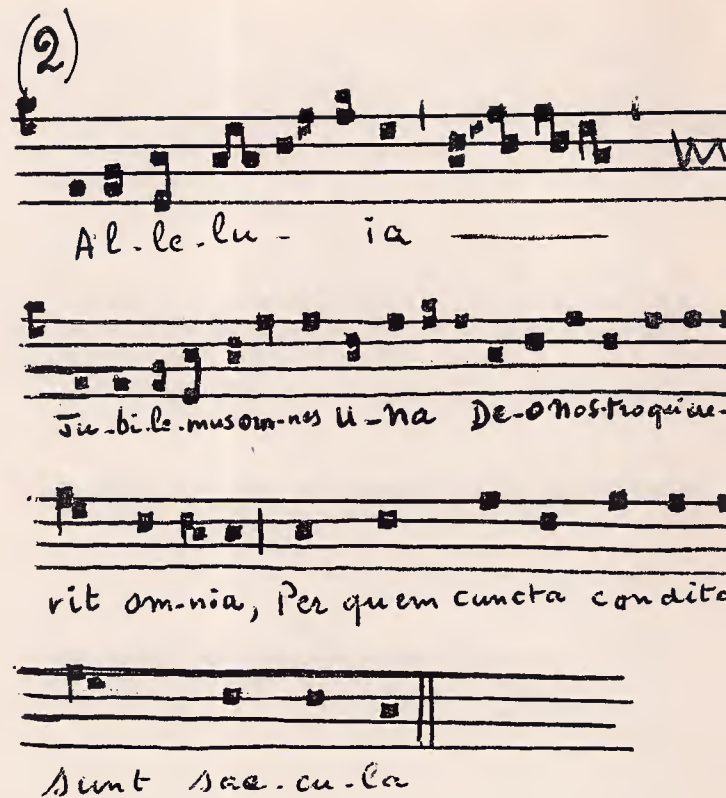 (2)
Al-le-lu-ia
Ju-bi-le-mus om-nes u-na De-o nos-tro qui cre-
rit om-nia, Per quem cuncta condita
Sunt sae-cu-la